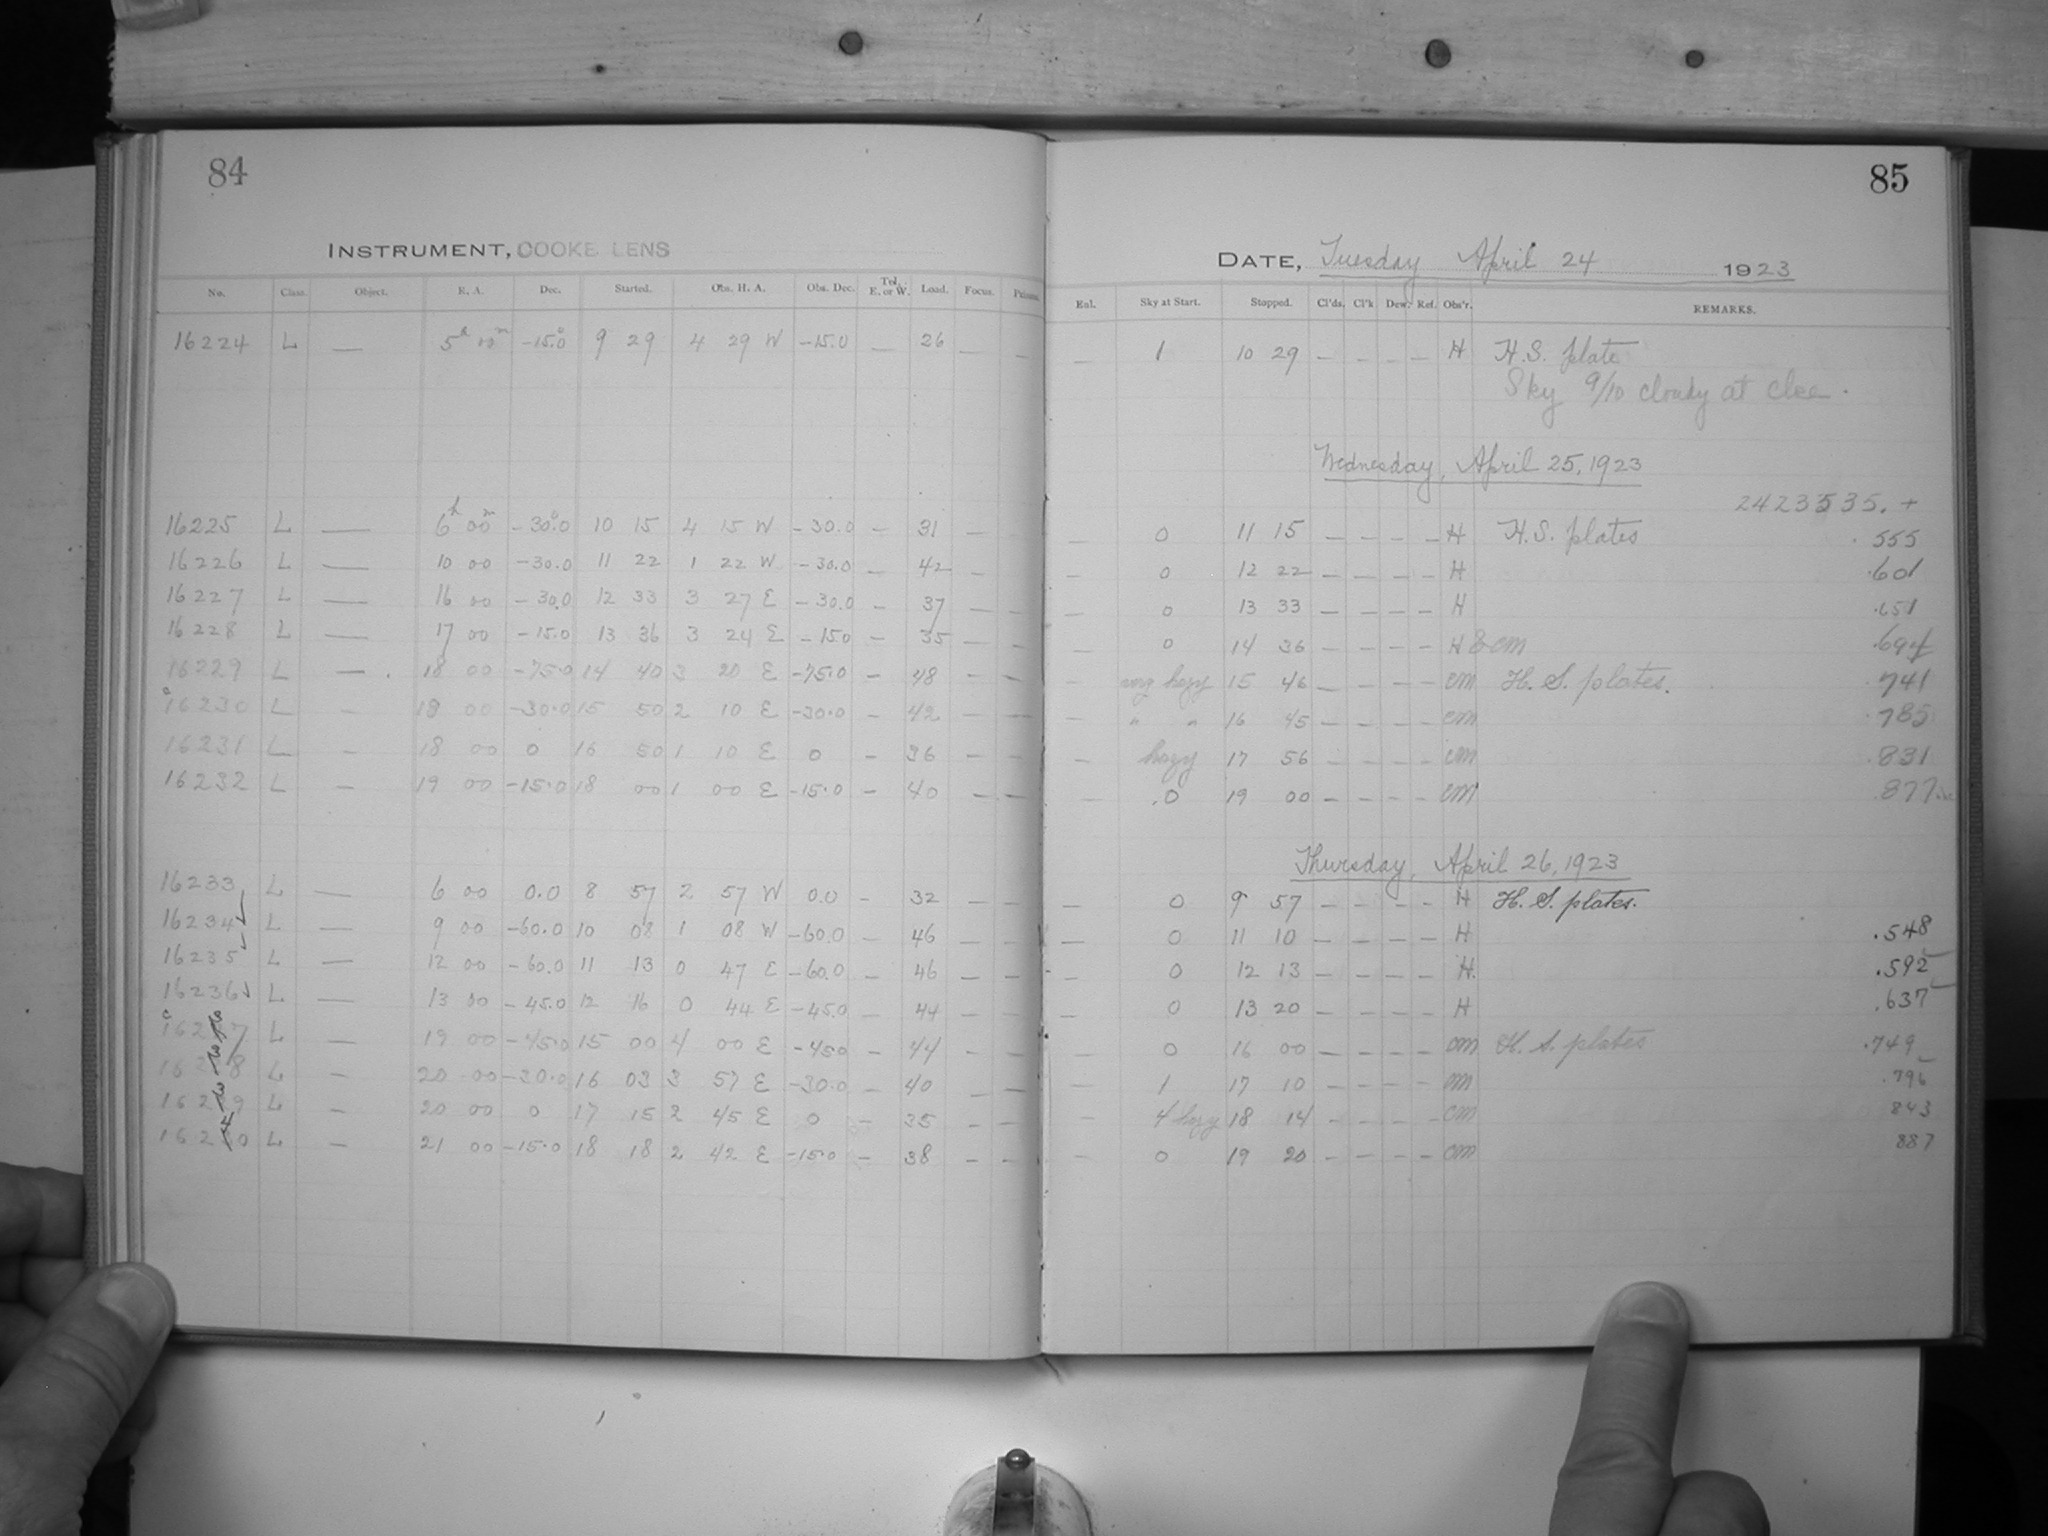 84
INSTRUMENT, COOKE LENS
No. Class. Object. R. A. Dec. Started. Obs. H. A. Obs. Dec. Tel. E. or W. Load. Focus.
16224 L — 5h 00m -15.0° 9 29 4 29 W -15.0 — 26 — —
16225 L — 6h 00m -30.0° 10 15 4 15 W -30.0 — 31 —
16226 L — 10 00 -30.0 11 22 1 22 W -30.0 — 42 —
16227 L — 16 00 -30.0 12 33 3 27 E -30.0 — 37 — —
16228 L — 17 00 -15.0 13 36 3 24 E -15.0 — 35 — —
16229 L — 18 00 -75.0 14 40 3 20 E -75.0 — 48 — —
16230 L — 18 00 -30.0 15 50 2 10 E -30.0 — 42 — —
16231 L — 18 00 0 16 50 1 10 E 0 — 36 — —
16232 L — 19 00 -15.0 18 00 1 00 E -15.0 — 40 — —
16233 L — 6 00 0.0 8 57 2 57 W 0.0 — 32 — —
16234 L — 9 00 -60.0 10 08 1 08 W -60.0 — 46 — —
16235 L — 12 00 -60.0 11 13 0 47 E -60.0 — 46 — —
16236 L — 13 00 -45.0 12 16 0 44 E -45.0 — 44 — —
16237 L — 19 00 -45.0 15 00 4 00 E -45.0 — 44 — —
16238 L — 20 00 -30.0 16 03 3 57 E -30.0 — 40 — —
16239 L — 20 00 0 17 15 2 45 E 0 — 35 — —
16240 L — 21 00 -15.0 18 18 2 42 E -15.0 — 38 — —
85
DATE, Tuesday April 24 1923
Enl. Sky at Start. Stopped. Cl'ds. Cl'k Dew. Ref. Obs'r. REMARKS.
— 1 10 29 — — — — H H.S. plate
Sky 9/10 cloudy at
Wednesday, April 25, 1923
2423535. +
— 0 11 15 — — — — H H.S. plates .555
— 0 12 22 — — — — H .601
— 0 13 33 — — — — H .651
— 0 14 36 — — — — H & cm .694
— very hazy 15 46 — — — — cm H. S. plates. .741
— " " 16 45 — — — — cm .785
— hazy 17 56 — — — — cm .831
— .0 19 00 — — — — cm .877
Thursday, April 26, 1923
— 0 9 57 — — — — H H. S. plates.
— 0 11 10 — — — — H .548
— 0 12 13 — — — — H. .592
— 0 13 20 — — — — H .637
— 0 16 00 — — — — cm H. S. plates .749
— 1 17 10 — — — — cm .796
— 4 hazy 18 14 — — — — cm 843
— 0 19 20 — — — — cm 887